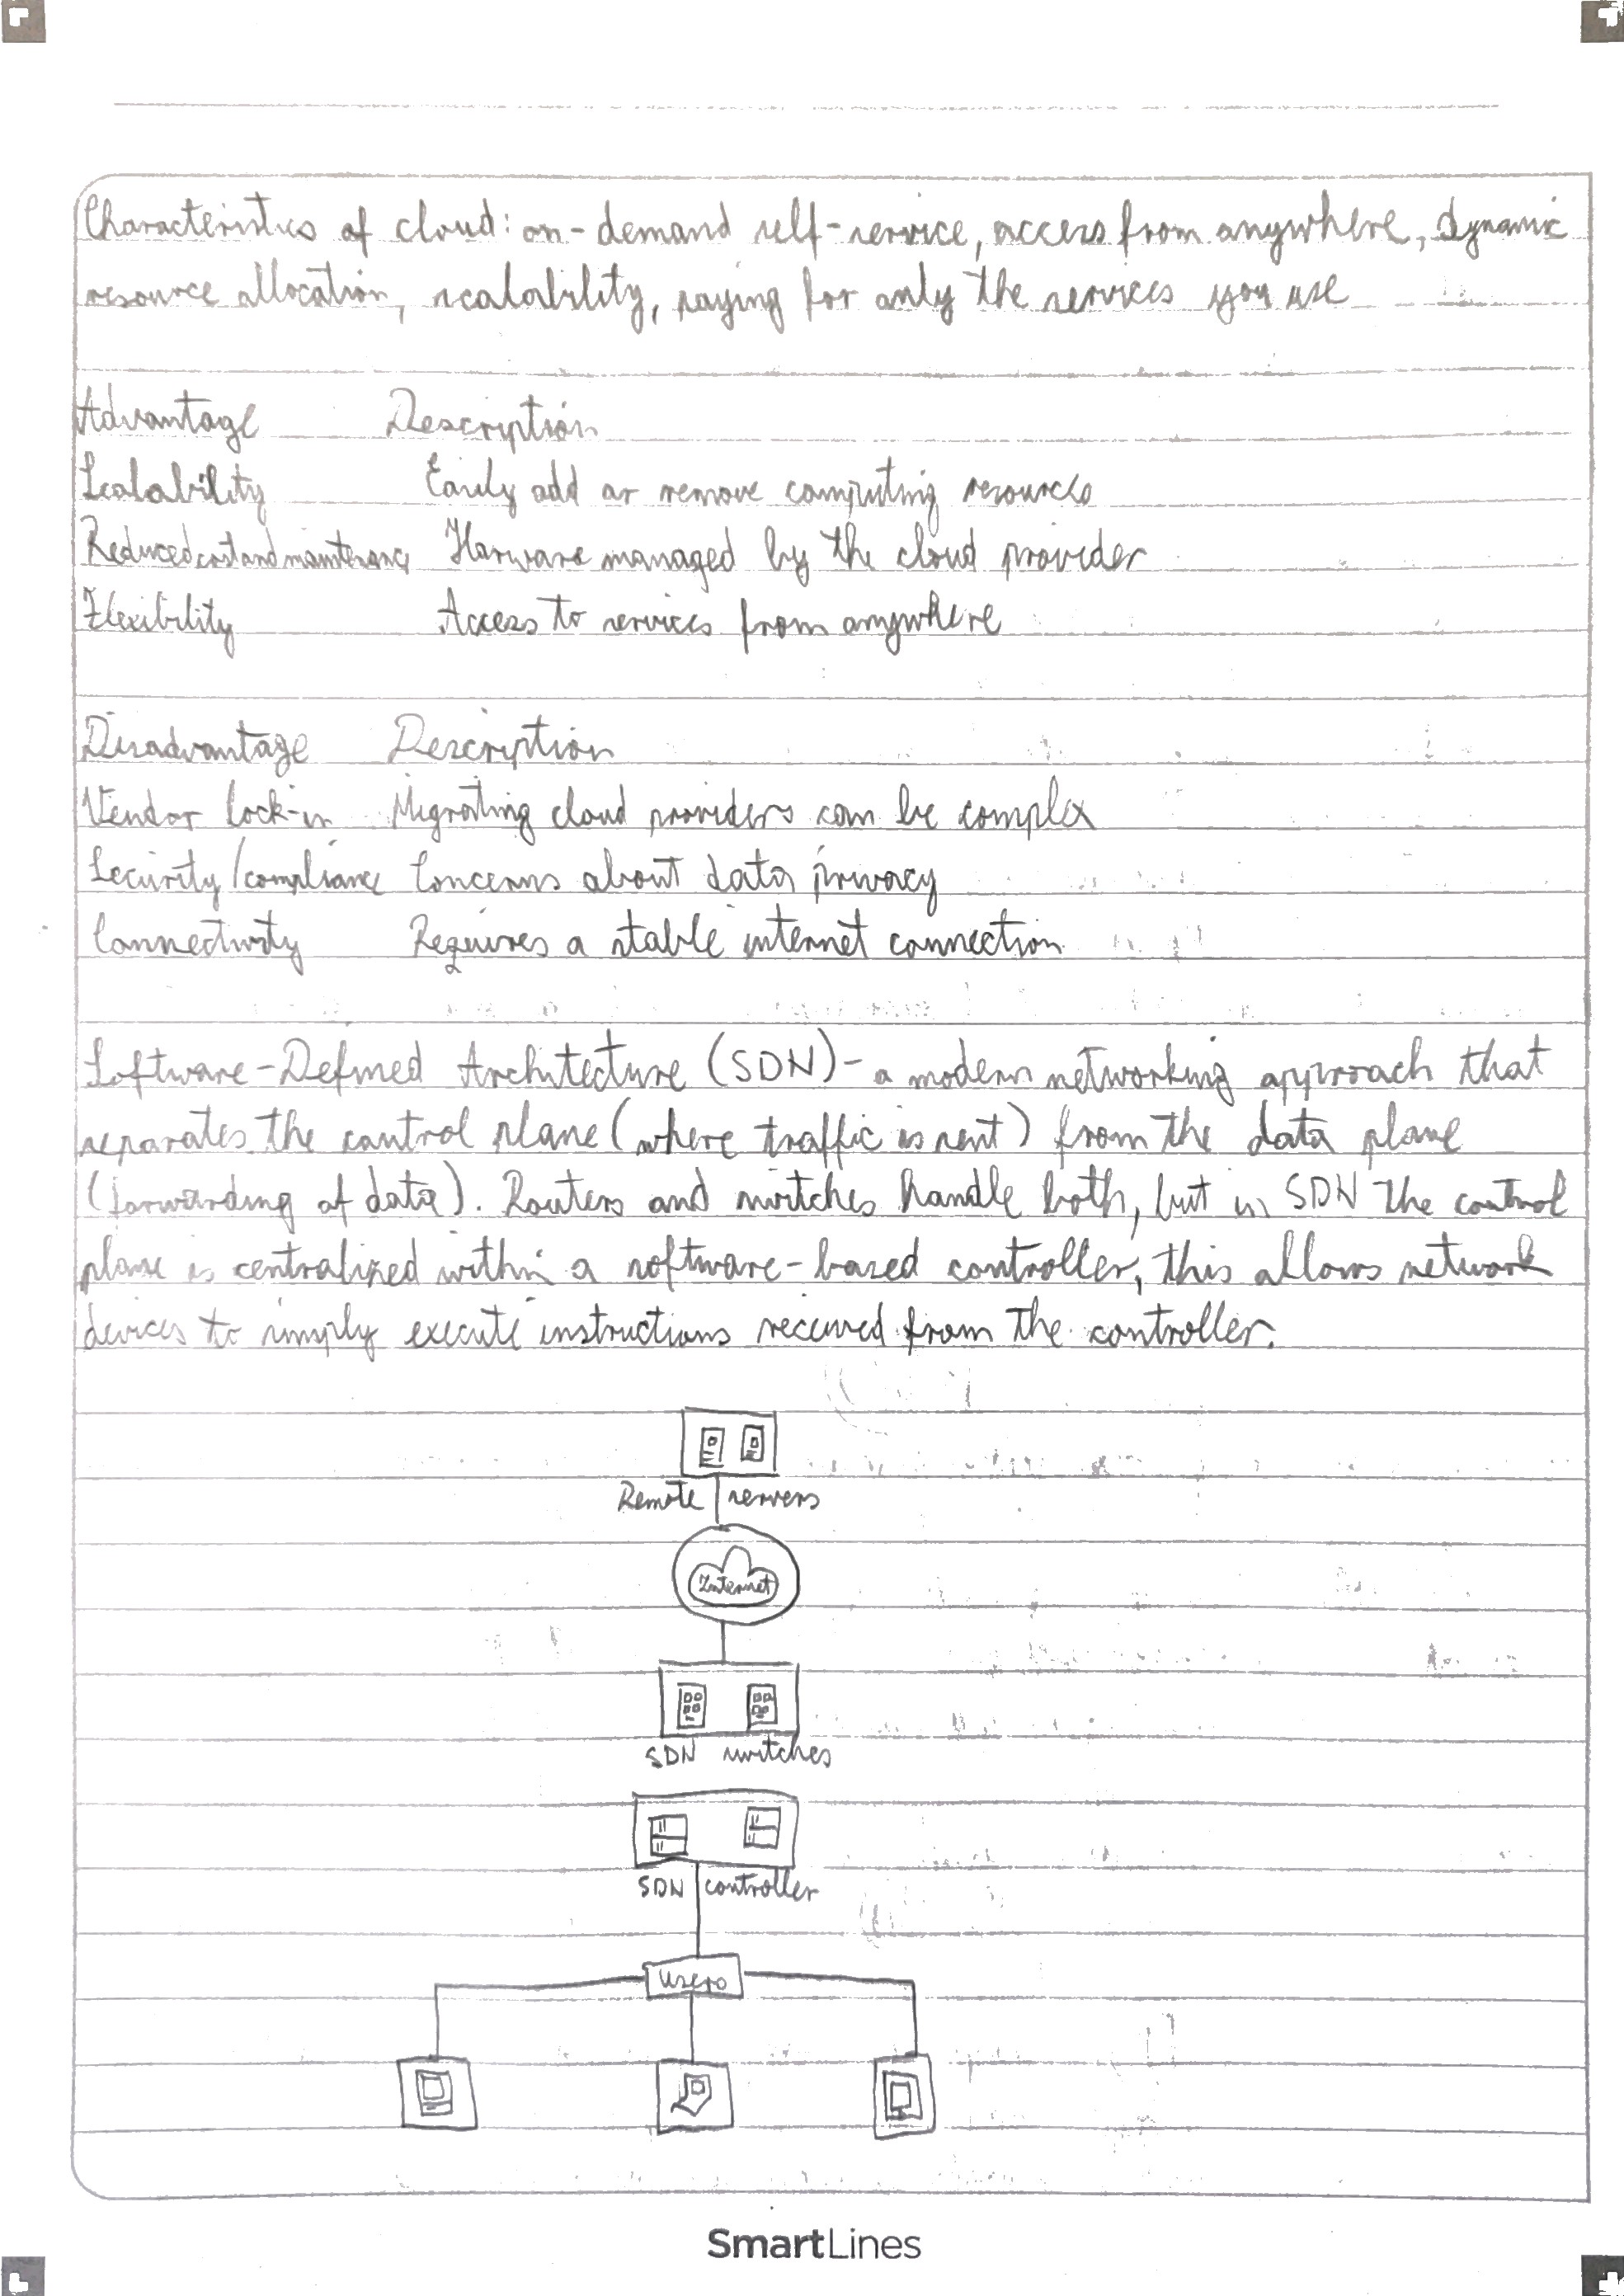 Characteristics of cloud: on-demand self-service, access from anywhere, dynamic
resource allocation, scalability, paying for only the services you use
Advantage Description
Scalability Easily add or remove computing resources
Reduced cost and maintenance Harware managed by the cloud provider
Flexibility Access to services from anywhere
Disadvantage Description
Vendor lock-in Migrating cloud providers can be complex
Security/compliance Concerns about data privacy
Connectivity Requires a stable internet connection
Software-Defined Architecture (SDN) - a modern networking approach that
separates the control plane (where traffic is sent) from the data plane
(forwarding of data). Routers and switches handle both, but in SDN the control
plane is centralized within a software-based controller, this allows network
devices to simply execute instructions received from the controller.
Remote servers
Internet
SDN switches
SDN controller
Users
SmartLines